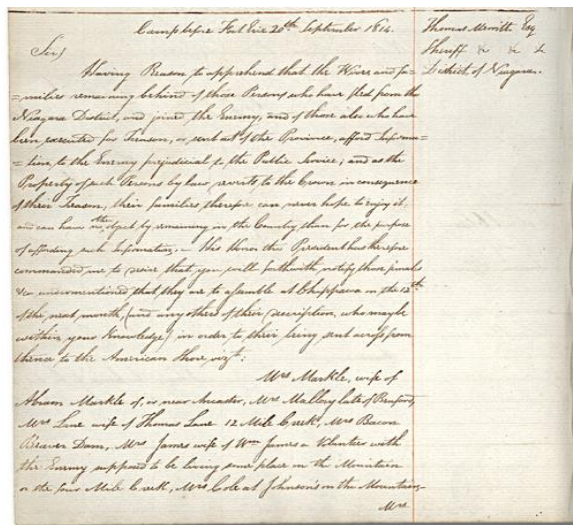 Camp before Fort Erie 20th September 1814.
Thomas Merritt Esq
Sheriff & & &
District of Niagara.
Sir,
Having Reason to apprehend that the Wives and fa-
=milies remaining behind of those Persons who have fled from the
Niagara District, and joined the Enemy, and of those also who have
been executed for Treason, or sent out of the Province, afford Informa-
=tion, to the Enemy prejudicial to the Public Service; and as the
Property of such Persons by law, reverts to the Crown in consequence
of their Treason, their families, therefore can never hope to enjoy it,
and can have no other object by remaining in the Country than for the purpose
of affording such Information. – His Honor the President has therefore
commanded me to desire that you will forthwith, notify those
&c undermentioned that, they are to assemble at Chippawa on the 12th
of the next month, (and any others of their description, who may be
within your Knowledge) in order to their being sent across from
thence to the American Shore, vizt:
Mrs Markle, wife of
Abram Markle of, or near Ancaster, Mrs Mallory late of Burford,
Mrs Lane wife of Thomas Lane 12 Mile Creek, Mrs Bacon
Beaver Dam, Mrs James wife of Wm James a Volunteer with
the Enemy supposed to be living some place on the Mountain
or the four Mile Creek, Mrs Cole at Johnson's on the Mountain,
Mrs